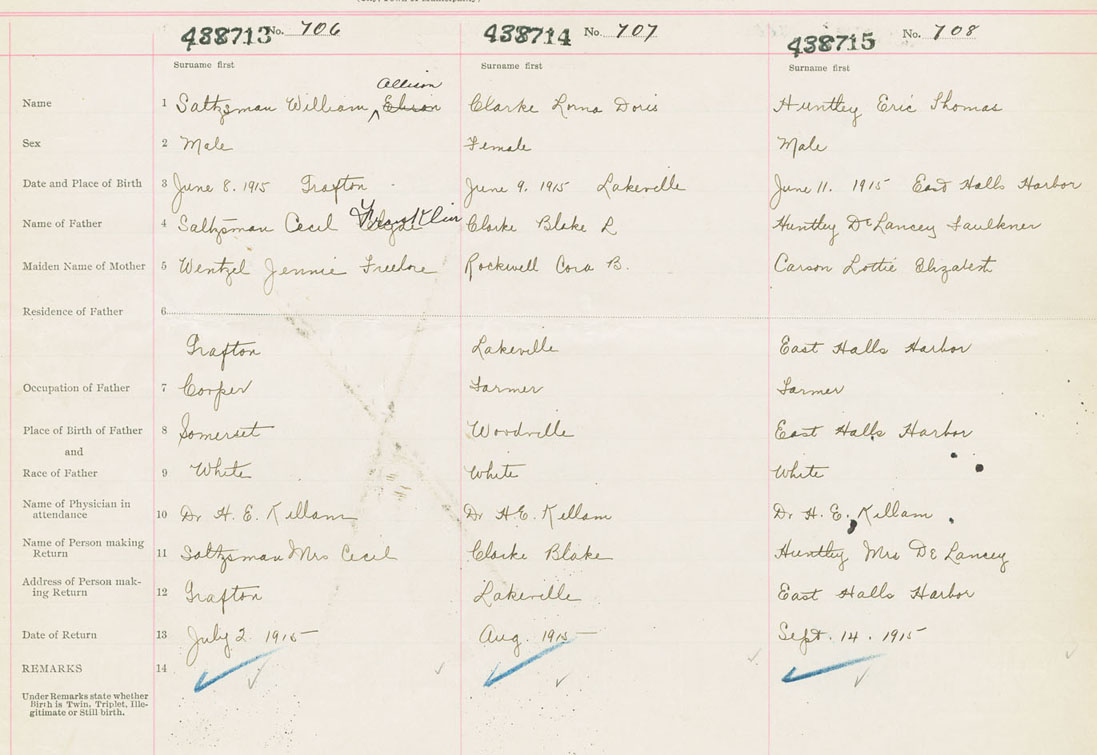 438713 No. 706 438714 No. 707 438715 No. 708
Surname first Surname first Surname first
Allison
Name 1 Saltzman William Clarke Lorna Doris Huntley Eric Thomas
Sex 2 Male Female Male
Date and Place of Birth 3 June 8. 1915 Grafton June 9. 1915 Lakeville June 11. 1915 East Halls Harbor
Name of Father 4 Saltzman Cecil Franklin Clarke Blake R Huntley DeLancey Faulkner
Maiden Name of Mother 5 Wentzel Jennie Freelore Rockwell Cora B. Carson Lottie Elizabeth
Residence of Father 6
Grafton Lakeville East Halls Harbor
Occupation of Father 7 Cooper Farmer Farmer
Place of Birth of Father 8 Somerset Woodville East Halls Harbor
and
Race of Father 9 White White White
Name of Physician in
attendance 10 Dr H. E. Killam Dr H.E. Killam Dr H. E. Killam
Name of Person making
Return 11 Saltzman Mrs Cecil Clarke Blake Huntley Mrs DeLancey
Address of Person mak-
ing Return 12 Grafton Lakeville East Halls Harbor
Date of Return 13 July 2. 1915 Aug. 1915 Sept. 14. 1915
REMARKS 14
Under Remarks state whether
Birth is Twin, Triplet, Ille-
gitimate or Still birth.